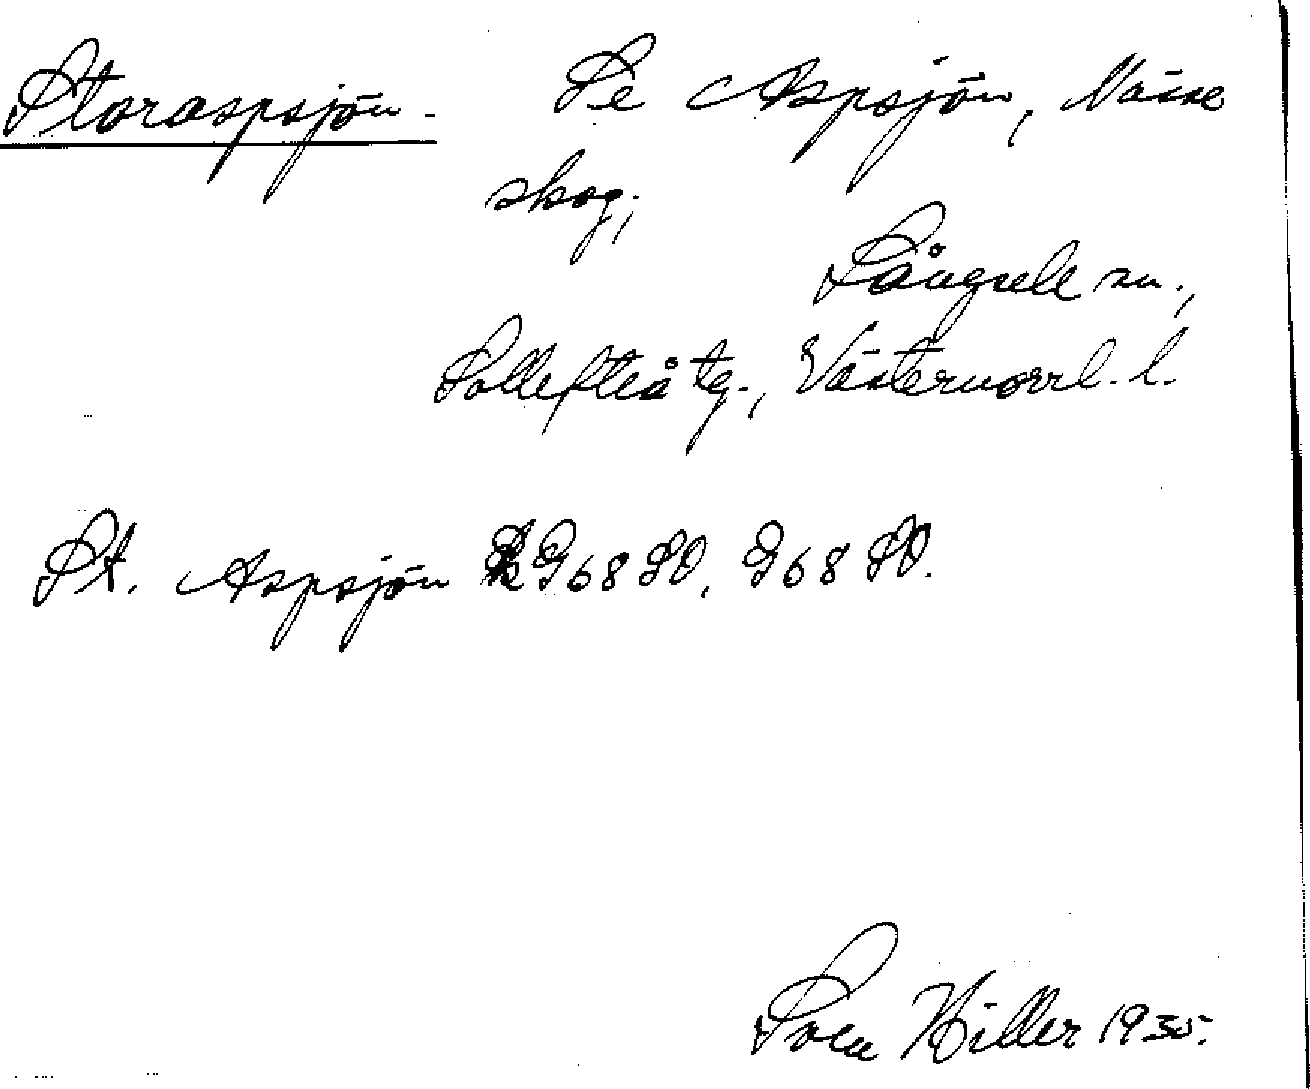 Storaspsjön. Se Aspsjön, Nässe
skog;
Långsele sn.,
Sollefteå tg., Västernorrl. l.
St. Aspsjön G68SO, G68SO.
Sven Hiller 1935.